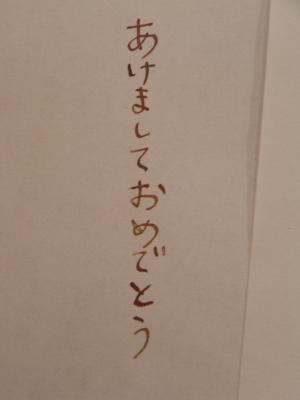 あけましておめでとう